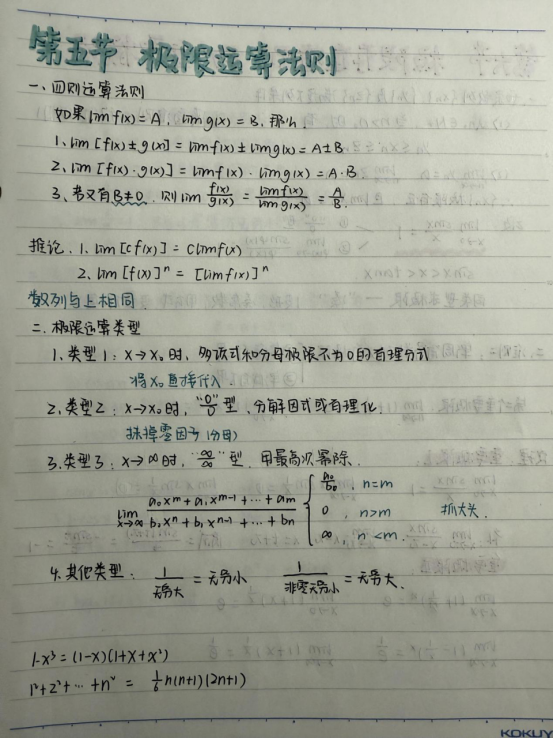 第五节 极限运算法则
一、四则运算法则
如果lim f(x) = A, lim g(x) = B, 那么
1、lim [f(x) ± g(x)] = lim f(x) ± lim g(x) = A ± B
2、lim [f(x) · g(x)] = lim f(x) · lim g(x) = A · B
3、若又有B≠0, 则 lim f(x)/g(x) = lim f(x)/lim g(x) = A/B
推论. 1. lim [c f(x)] = c lim f(x)
2. lim [f(x)]ⁿ = [lim f(x)]ⁿ
数列与上相同
二、极限运算类型
1、类型1: x→x₀ 时, 多项式和分母极限不为0的有理分式
将x₀直接代入.
2、类型2: x→x₀ 时, "0/0" 型, 分解因式或有理化.
抹掉零因子(分母)
3、类型3: x→∞ 时, "∞/∞" 型. 用最高次幂除.
lim x→∞ (a₀xᵐ + a₁xᵐ⁻¹ + ··· + aₘ)/(b₀xⁿ + b₁xⁿ⁻¹ + ··· + bₙ) { a₀/b₀, n=m
0, n>m 抓大头.
∞, n<m.
4、其他类型: 1/无穷大 = 无穷小 1/非零无穷小 = 无穷大.
1-x³ = (1-x)(1+x+x²)
1²+2²+ ··· +n² = 1/6 n(n+1)(2n+1)
KOKUY